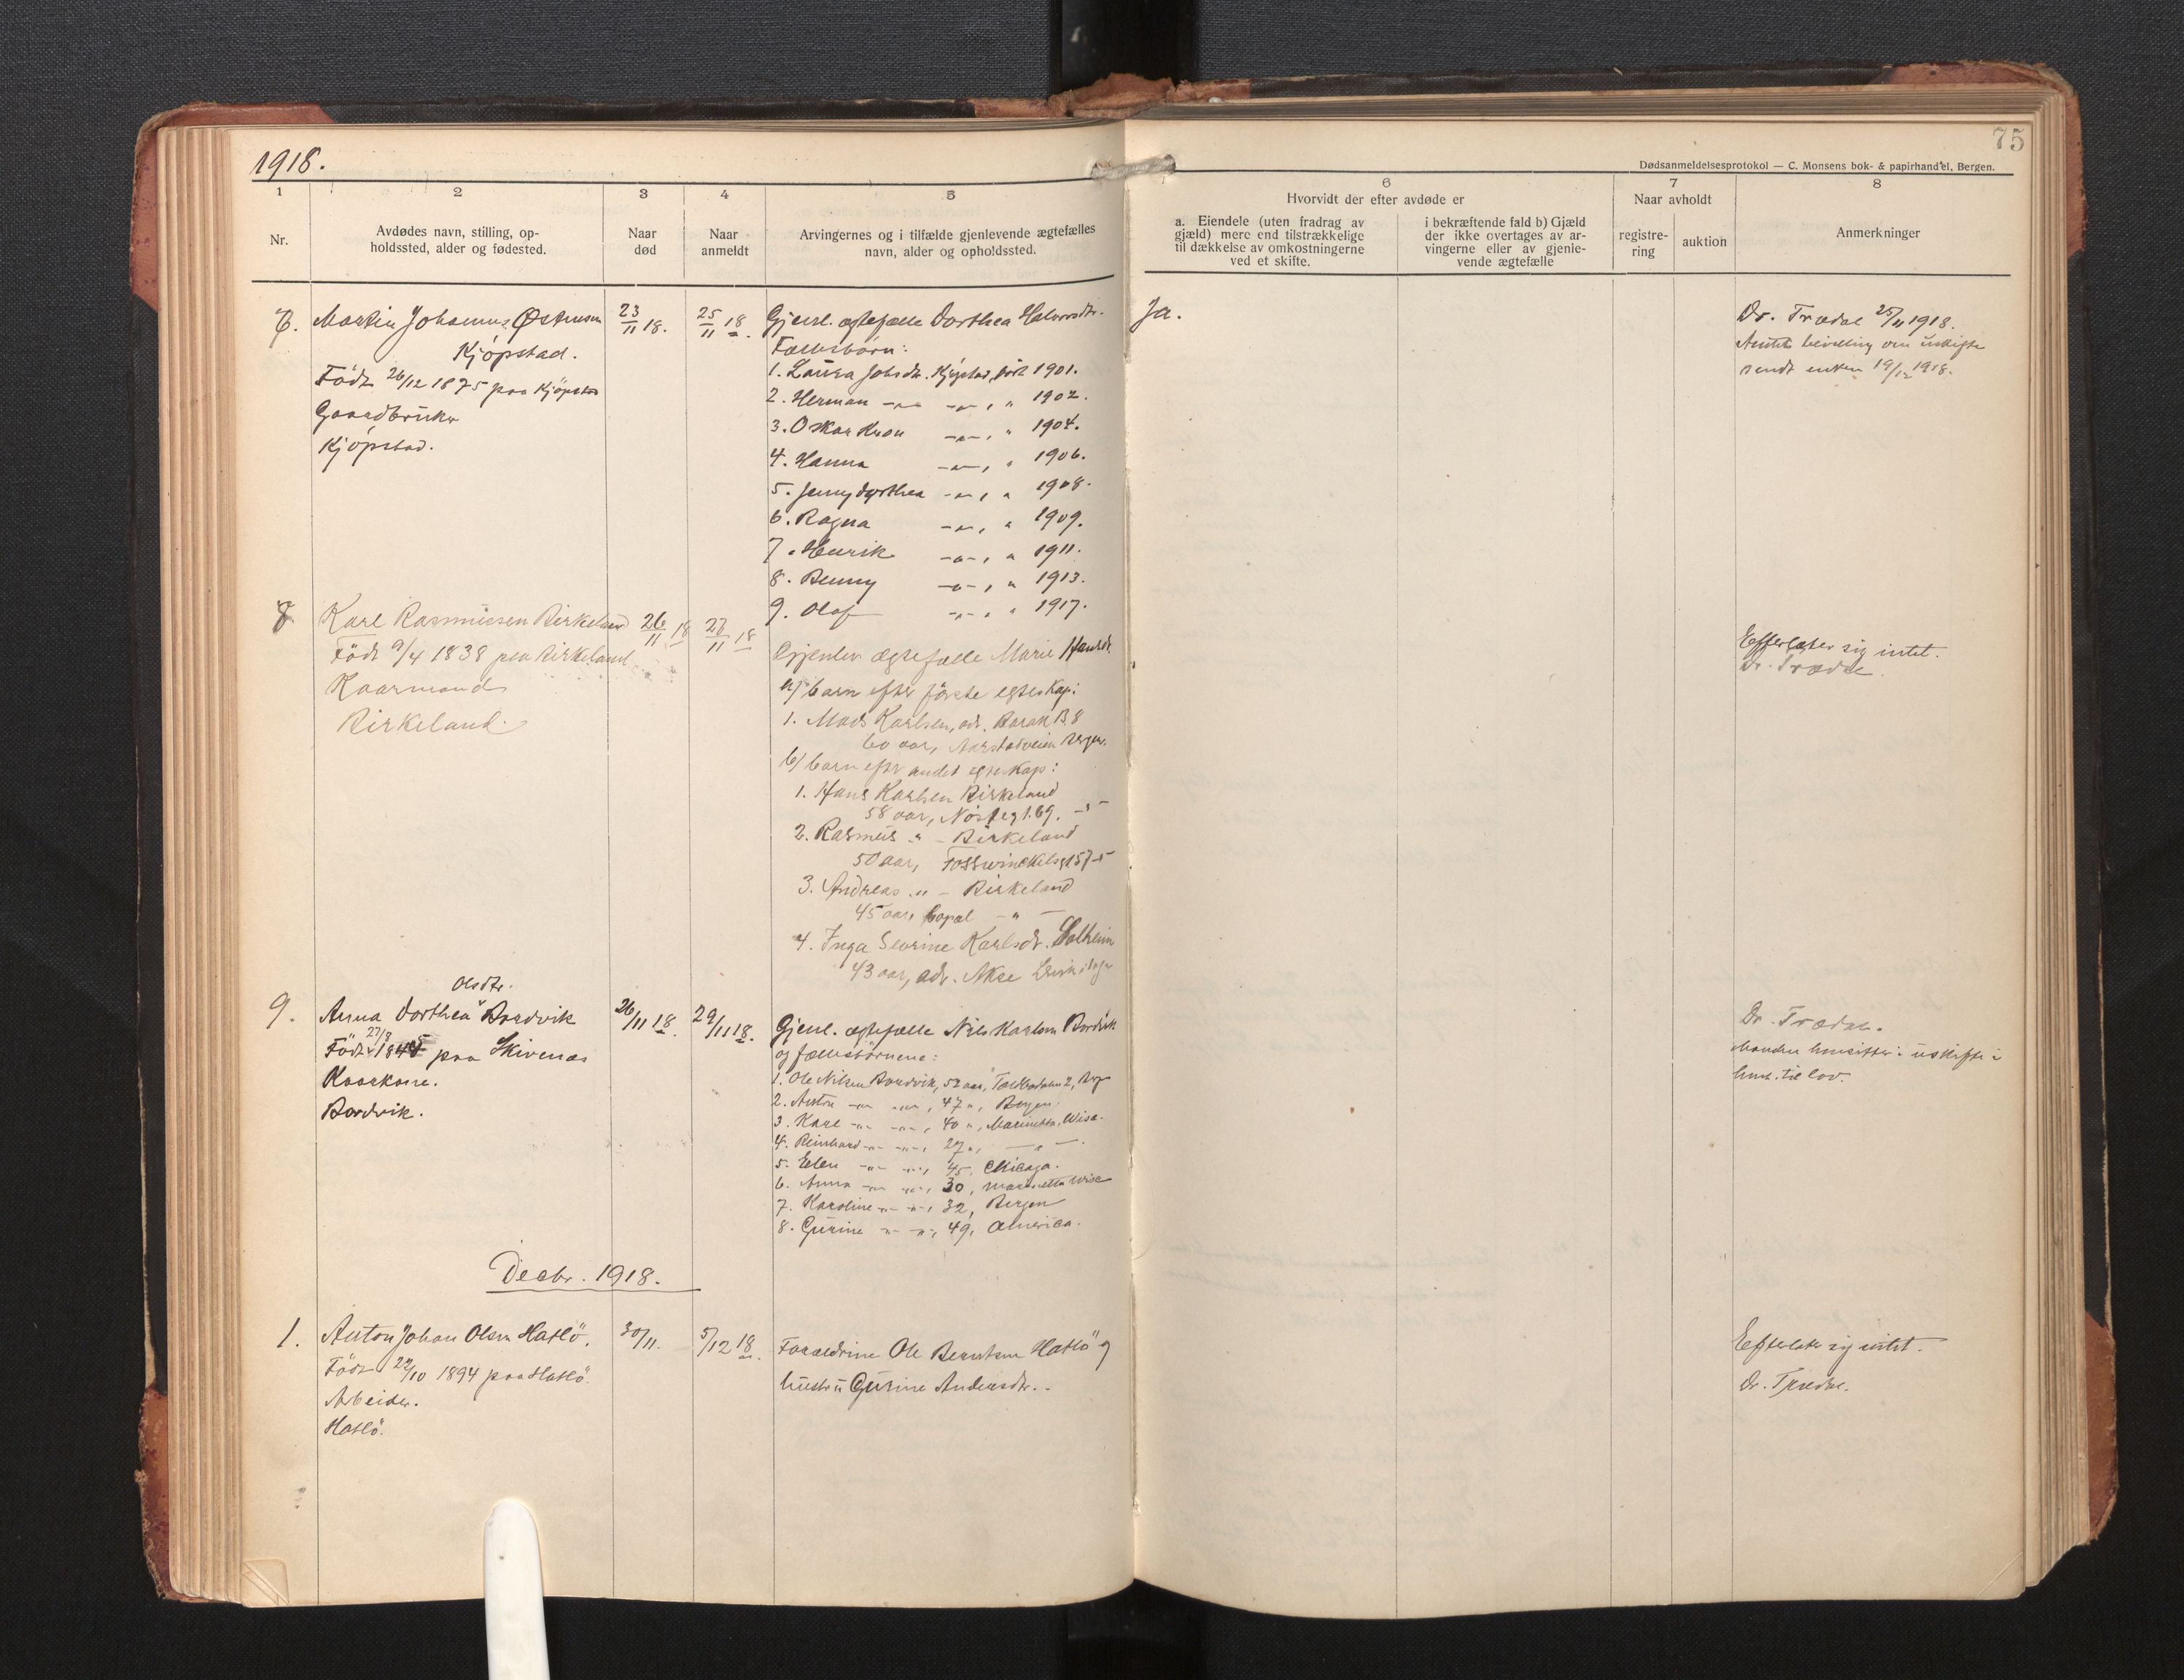 1918.
75
Dødsanmeldelsesprotokol — C. Monsens bok- & papirhandel, Bergen.
1
2
3
4
5
6
7
8
Nr.
Avdødes navn, stilling, op-
holdssted, alder og fødested.
Naar
død
Naar
anmeldt
Arvingernes og i tilfælde gjenlevende ægtefælles
navn, alder og opholdssted.
Hvorvidt der efter avdøde er
a. Eiendele (uten fradrag av
gjæld) mere end tilstrækkelige
til dækkelse av omkostningerne
ved et skifte.
i bekræftende fald b) Gjæld
der ikke overtages av ar-
vingerne eller av gjenle-
vende ægtefælle
Naar avholdt
registre-
ring
auktion
Anmerkninger
7.
Martin Johannes Østensen
Kjöpstad.
Födt 26/12 1875 paa Kjöpstad
Gaardbruker
Kjöpstad.
23/11 18.
25/11 18.
Gjenl. ægtefælle Dorthea Halvorsdtr.
Fællesbörn:
1. Laura Johsdtr. Kjöpstad, født 1901.
2. Herman -"- -"-, " 1902.
3. Oskar -"-, " 1904.
4. Hanna -"-, " 1906.
5. Jenny Dorthea -"-, " 1908.
6. Ragna -"-, " 1909.
7. Henrik -"-, " 1911.
8. Benny -"-, " 1913.
9. Olaf -"-, " 1917.
Ja.
Dr. Trædal 25/11 1918.
bevilling om uskifte
sendt enken 19/12 1918.
8
Karl Rasmussen Birkeland
Födt 9/4 1838 paa Birkeland
Kaarmand
Birkeland.
26/11 18
27/11 18
Gjenlev. ægtefælle Marie Hansdt.
a) barn efter förste egteskap:
1. Mads Karlsen, adr. Barak B. 8
60 aar, Aarstadveien Bergen.
b) barn efter andet egteskap:
1. Hans Karlsen Birkeland
58 aar, Nöstegt. 69. -"-
2. Rasmus " - Birkeland
50 aar, Fosswinckelsgt 57 -"-
3. Andreas " - Birkeland
45 aar, bopæl -"-
4. Inga Severine Karlsdt. Solheim
43 aar, adr.
Efterlater sig intet.
Dr. Trædal.
9.
Olsdtr.
Anna Dorthea Bordvik
Födt 27/8 1845 paa Skivenes
Kaarkone.
Bordvik.
26/11 18.
29/11 18.
Gjenl. ægtefælle Nils Karlsen Bordvik
og fællesbörnene:
1. Ole Nilsen Bordvik, 52 aar, Toldbodalm 2, Brg
2. Anton -"- -"-, 47 ", Bergen.
3. Karl -"- -"-, 40 ", Marinette, Wisc.
4. Reinhard -"- -"-, 27 ", -"-.
5. Elen -"- -"-, 45, Chicago.
6. Anna -"- -"-, 30, Marinette Wisc
7. Karoline -"- -"-, 32, Bergen
8. Gurine -"- -"-, 49, America.
Dr. Trædal.
Manden hensitter i uskifte i
henh. til lov.
Decbr. 1918.
1.
Anton Johan Olsen Hatlö.
Födt 29/10 1894 paa Hatlö.
Arbeider.
Hatlö.
30/11.
5/12 18.
Forældrene Ole Berntsen Hatlö og
hustru Gurine Andersdtr.
Efterlater sig intet.
Dr. Trædal.